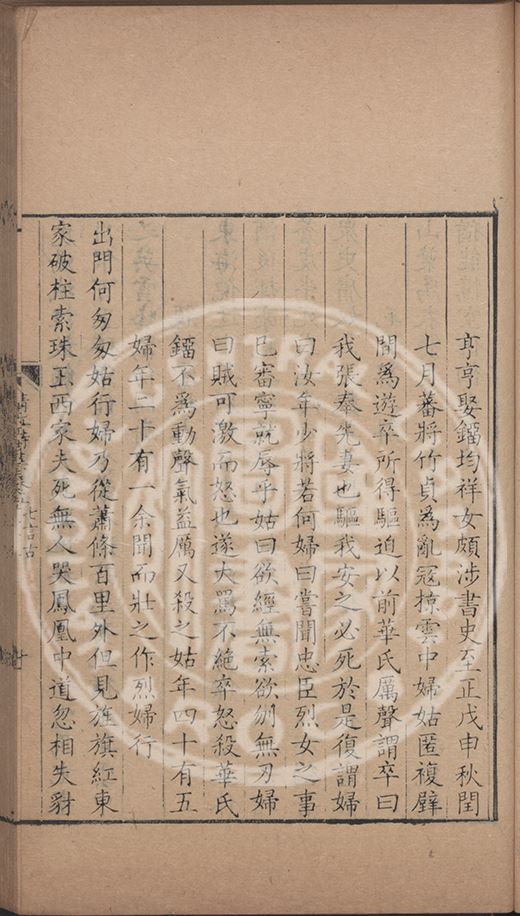 亨亨娶鐂均祥女頗涉書史至正戊申秋閏
七月蕃將竹貞爲亂冦掠雲中婦姑匿複壁
間爲遊卒所得驅迫以前華氏厲聲謂卒曰
我張奉先妻也驅我安之必死於是復謂婦
曰汝年少將若何婦曰嘗聞忠臣烈女之事
已審寧就辱乎姑曰欲經無索欲刎無刃婦
曰賊可激而怒也遂大罵不絶卒怒殺華氏
鐂不爲動聲氣益厲又殺之姑年四十有五
婦年二十有一余聞而壯之作烈婦行
出門何匆匆姑行婦乃從蕭條百里外但見旌旗紅東
家破柱索珠玉西家夫死無人哭鳳凰中道忽相失豺
七言古